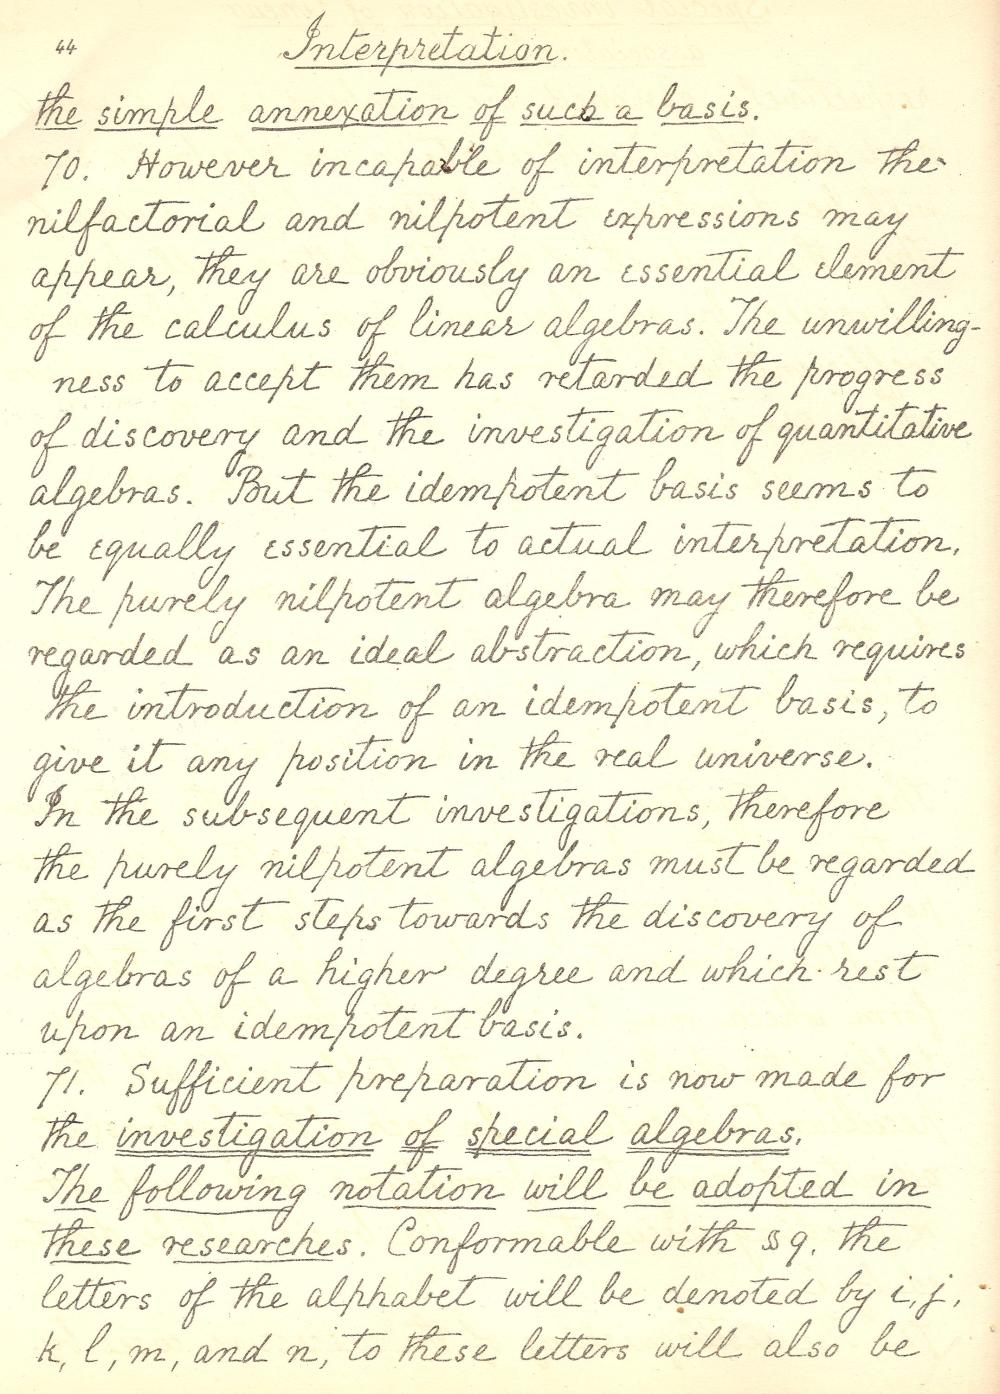 44
Interpretation.
the simple annexation of such a basis.
70. However incapable of interpretation the
nilfactorial and nilpotent expressions may
appear, they are obviously an essential element
of the calculus of linear algebras. The unwilling-
ness to accept them has retarded the progress
of discovery and the investigation of quantitative
algebras. But the idempotent basis seems to
be equally essential to actual interpretation.
The purely nilpotent algebra may therefore be
regarded as an ideal abstraction, which requires
the introduction of an idempotent basis, to
give it any position in the real universe.
In the subsequent investigations, therefore
the purely nilpotent algebras must be regarded
as the first steps towards the discovery of
algebras of a higher degree and which rest
upon an idempotent basis.
71. Sufficient preparation is now made for
the investigation of special algebras.
The following notation will be adopted in
these researches. Conformable with § 9, the
letters of the alphabet will be denoted by i, j,
k, l, m, and n, to these letters will also be